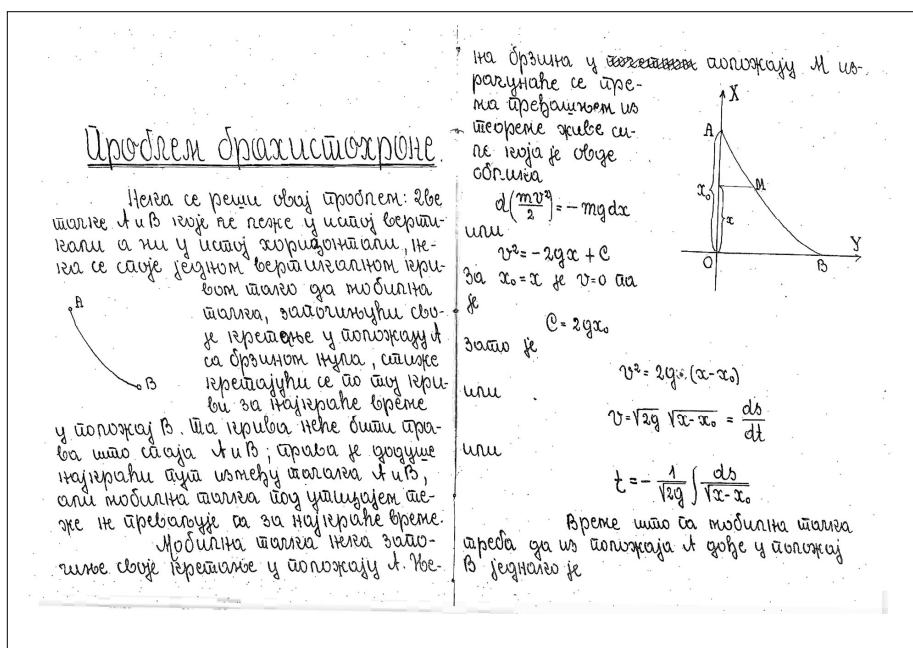 Проблем брахистохроне.
Нека се реши овај проблем: Две
тачке А и В које не леже у истој верти-
кали а ни у истој хоризонтали, не-
ка се споје једном вертикалном кри-
вом тако да мобилна
тачка, започињући сво-
је кретање у положају А
са брзином нула, стиже
кретајући се по тој кри-
ви за најкраће време
у положај В. Та крива неће бити пра-
ва што спаја А и В; права је додуше
најкраћи пут између тачака А и В,
али мобилна тачка под утицајем те-
же не преваљује га за најкраће време.
Мобилна тачка нека запо-
чиње своје кретање у положају А. Ње-
A
B
на брзина у положају М из-
рачунаће се пре-
ма пређашњем из
теореме живе си-
ле која је овде
облика
d(mv²/2) = -mgdx
или
v² = -2gx + C
За x₀=x је v=0 па
је
C = 2gx₀
Зато је
v² = 2g(x-x₀)
или
v = √2g √x-x₀ = ds/dt
или
t = - 1/√2g ∫ ds/√x-x₀
Време што га мобилна тачка
треба да из положаја А дође у положај
В једнако је
X
A
x₀
M
x
Y
O
B